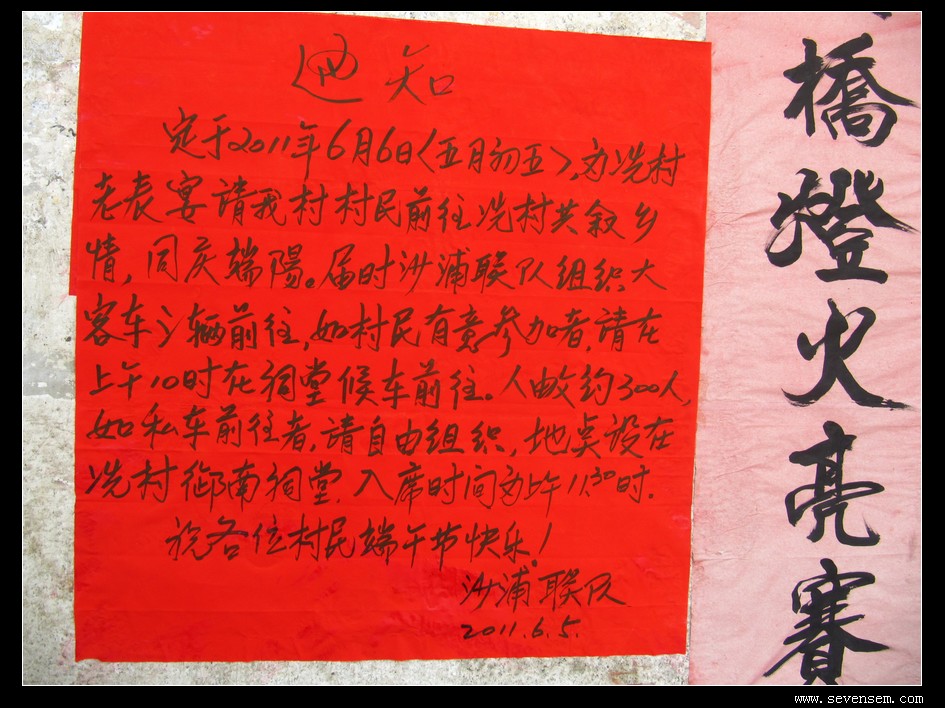 通知
定于2011年6月6日<五月初五>,为冼村
老表宴请我村村民前往冼村共叙乡
情,同庆端陽。届时沙浦联队组织大
客车 辆前往,如村民有意参加者,请在
上午10时在祠堂候车前往。人数约300人,
如私车前往者,请自由组织,地点设在
冼村 南祠堂,入席时间为上午11:30时.
祝各位村民端午节快乐!
沙浦联队
2011.6.5.
橋燈火亮賽
www.sevensem.com